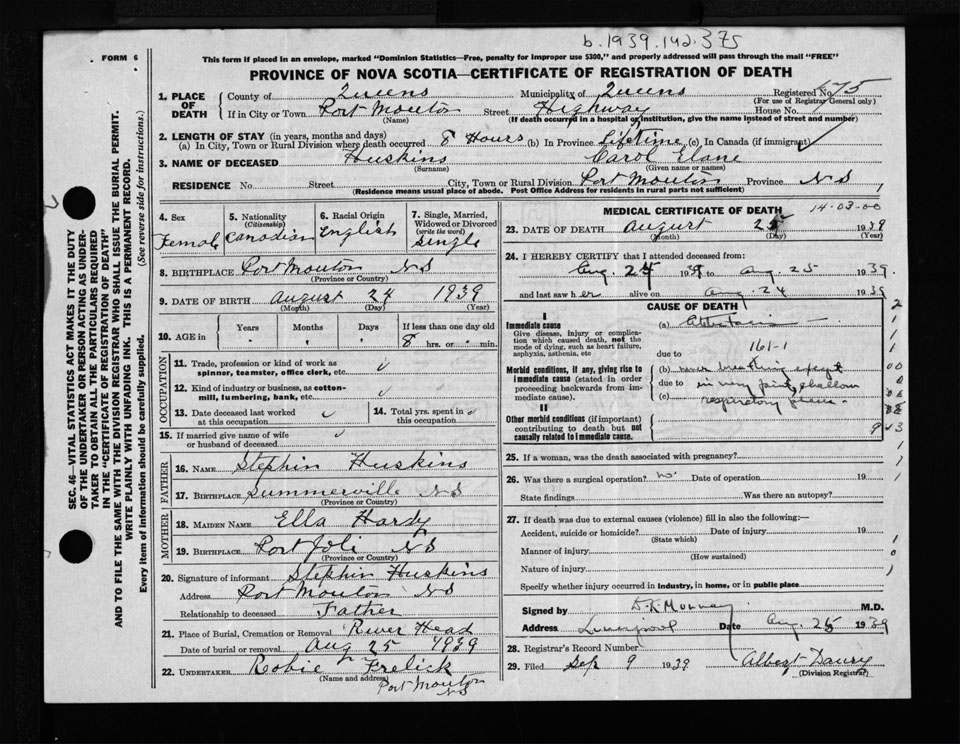 b.1939.142.375
FORM 6
This form if placed in an envelope, marked "Dominion Statistics—Free, penalty for improper use $300," and properly addressed will pass through the mail "FREE"
PROVINCE OF NOVA SCOTIA—CERTIFICATE OF REGISTRATION OF DEATH
SEC. 46—VITAL STATISTICS ACT MAKES IT THE DUTY
OF THE UNDERTAKER OR PERSON ACTING AS UNDER-
TAKER TO OBTAIN ALL THE PARTICULARS REQUIRED
IN THE "CERTIFICATE OF REGISTRATION OF DEATH"
AND TO FILE THE SAME WITH THE DIVISION REGISTRAR WHO SHALL ISSUE THE BURIAL PERMIT.
WRITE PLAINLY WITH UNFADING INK. THIS IS A PERMANENT RECORD.
Every item of information should be carefully supplied. (See reverse side for instructions.)
1. PLACE OF DEATH
County of Queens Municipality of Queens Registered No. 175
(For use of Registrar General only)
If in City or Town Port Mouton Street Highway House No.
(Name) (If death occurred in a hospital or institution, give the name instead of street and number)
2. LENGTH OF STAY (in years, months and days)
(a) In City, Town or Rural Division where death occurred 8 Hours (b) In Province Lifetime (c) In Canada (if immigrant)
3. NAME OF DECEASED Huskins Carol Elane
(Surname) (Given name or names)
RESIDENCE No. Street City, Town or Rural Division Port Mouton Province N S
(Residence means usual place of abode. Post Office Address for residents in rural parts not sufficient)
4. Sex Female
5. Nationality (Citizenship) Canadian
6. Racial Origin English
7. Single, Married, Widowed or Divorced (write the word) Single
8. BIRTHPLACE Port Mouton N S
(Province or Country)
9. DATE OF BIRTH August 24 1939
(Month) (Day) (Year)
10. AGE in Years Months Days If less than one day old
8 hrs. or min.
OCCUPATION
11. Trade, profession or kind of work as
spinner, teamster, office clerk, etc.
12. Kind of industry or business, as cotton-
mill, lumbering, bank, etc.
13. Date deceased last worked
at this occupation
14. Total yrs. spent in
this occupation
15. If married give name of wife
or husband of deceased
FATHER
16. NAME Stephin Huskins
17. BIRTHPLACE Summerville N S
(Province or Country)
MOTHER
18. MAIDEN NAME Ella Hardy
19. BIRTHPLACE Port Joli N S
(Province or Country)
20. Signature of informant Stephin Huskins
Address Port Mouton N S
Relationship to deceased Father
21. Place of Burial, Cremation or Removal River Head
Date of burial or removal Aug 25 1939
22. UNDERTAKER Robie Frelick
(Name and address)
Port Mouton
N S
MEDICAL CERTIFICATE OF DEATH 14-03-00
23. DATE OF DEATH August 25 1939
(Month) (Day) (Year)
24. I HEREBY CERTIFY that I attended deceased from:
Aug. 24 1939 to Aug. 25 1939
and last saw her alive on Aug. 24 1939
CAUSE OF DEATH
I
Immediate cause
Give disease, injury or complica-
tion which caused death, not the
mode of dying, such as heart failure,
asphyxia, asthenia, etc
(a)
due to 161-1
Morbid conditions, if any, giving rise to
immediate cause (stated in order
proceeding backwards from im-
mediate cause).
(b) never breathing except
due to in very faint shallow
(c) respiratory
II
Other morbid conditions (if important)
contributing to death but not
causally related to immediate cause.
25. If a woman, was the death associated with pregnancy?
26. Was there a surgical operation? no Date of operation 19
State findings Was there an autopsy?
27. If death was due to external causes (violence) fill in also the following:—
Accident, suicide or homicide? Date of injury 19
(State which)
Manner of injury
(How sustained)
Nature of injury
Specify whether injury occurred in industry, in home, or in public place
Signed by Murray M.D.
Address Liverpool Date Aug 25 1939
28. Registrar's Record Number
29. Filed Sep 9 1939 Albert
(Division Registrar)